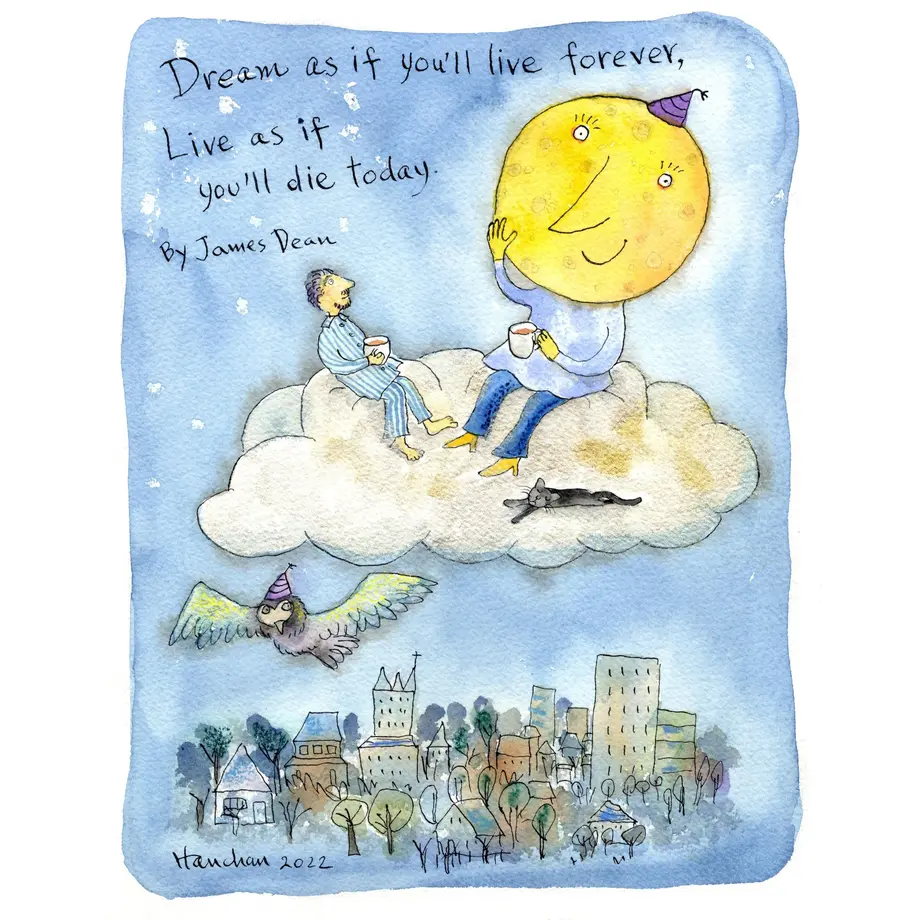 Dream as if you'll live forever,
Live as if
you'll die today.
By James Dean
Hanchan 2022